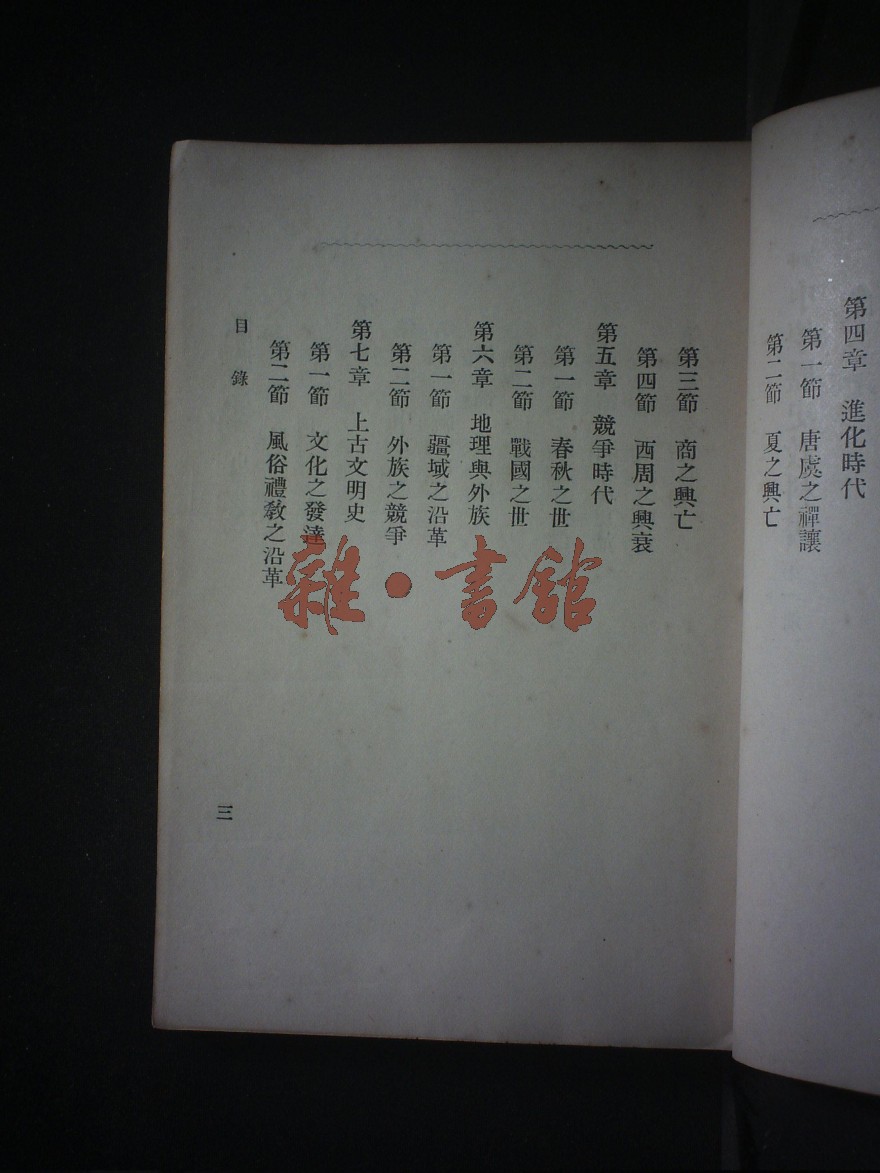 第四章　進化時代
第一節　唐虞之禪讓
第二節　夏之興亡
第三節　商之興亡
第四節　西周之興衰
第五章　競爭時代
第一節　春秋之世
第二節　戰國之世
第六章　地理與外族
第一節　疆域之沿革
第二節　外族之競爭
第七章　上古文明史
第一節　文化之發達
第二節　風俗禮敎之沿革
目錄
三
雜·書館